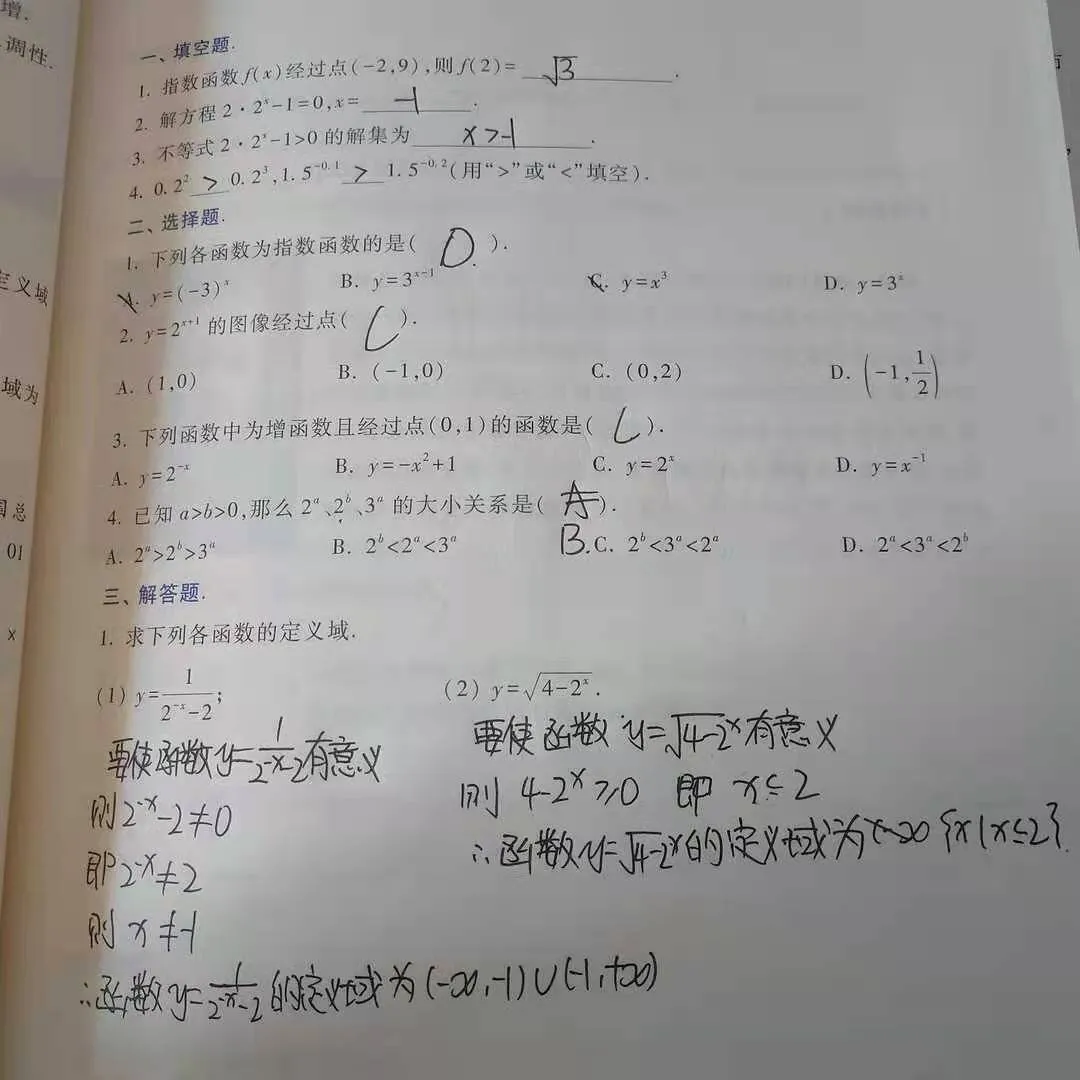 增.
调性.
定义域
域为
国总
01
x
一、填空题.
1. 指数函数f(x)经过点(-2,9),则f(2)= √3 .
2. 解方程2·2ˣ-1=0,x= -1 .
3. 不等式2·2ˣ-1>0的解集为 x>-1 .
4. 0.2² > 0.2³,1.5⁻⁰·¹ > 1.5⁻⁰·²(用“>”或“<”填空).
二、选择题.
1. 下列各函数为指数函数的是( D ).
A. y=(-3)ˣ B. y=3ˣ⁻¹ C. y=x³ D. y=3ˣ
2. y=2ˣ⁺¹的图像经过点( C ).
A. (1,0) B. (-1,0) C. (0,2) D. (-1,1/2)
3. 下列函数中为增函数且经过点(0,1)的函数是( C ).
A. y=2⁻ˣ B. y=-x²+1 C. y=2ˣ D. y=x⁻¹
4. 已知a>b>0,那么2ᵃ、2ᵇ、3ᵃ的大小关系是( A ).
B.
A. 2ᵃ>2ᵇ>3ᵃ B. 2ᵇ<2ᵃ<3ᵃ C. 2ᵇ<3ᵃ<2ᵃ D. 2ᵃ<3ᵃ<2ᵇ
三、解答题.
1. 求下列各函数的定义域.
(1) y=1/(2⁻ˣ-2); (2) y=√(4-2ˣ).
要使函数y=1/(2⁻ˣ-2)有意义
则2⁻ˣ-2≠0
即2⁻ˣ≠2
则 x≠-1
∴函数y=1/(2⁻ˣ-2)的定义域为(-∞,-1)∪(-1,+∞)
要使函数y=√(4-2ˣ)有意义
则 4-2ˣ≥0 即 x≤2
∴函数y=√(4-2ˣ)的定义域为 {x|x≤2}.